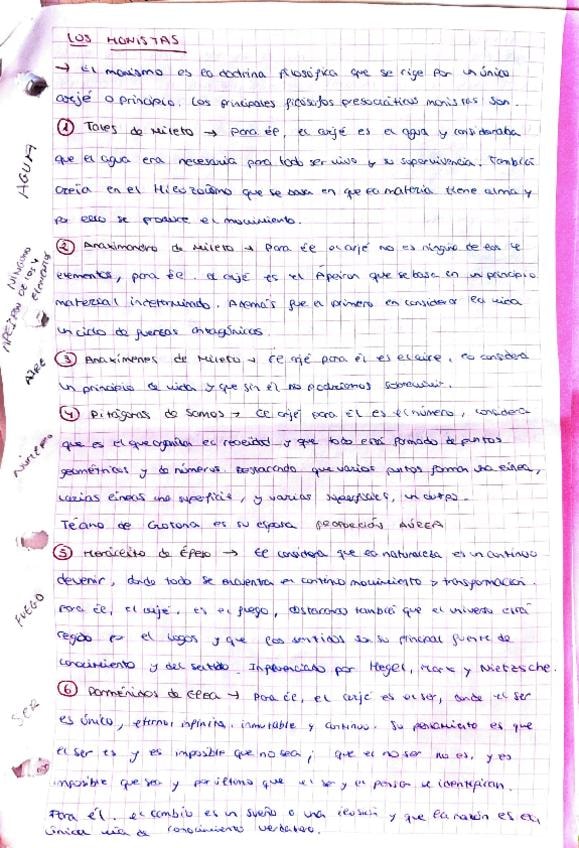 LOS MONISTAS
→ El monismo es la doctrina filosófica que se rige por un único
arjé o principio. Los principales filósofos presocráticos monistas son.
1 Tales de Mileto → Para él, el arjé es el agua y consideraba
que el agua era necesaria para todo ser vivo y su supervivencia. También
creía en el Hilozoísmo que se basa en que la materia tiene alma y
por ello se produce el movimiento.
AGUA
2 Anaximandro de Mileto → Para él el arjé no es ninguno de los 4
elementos, para él el arjé es el Ápeiron que se basa en un principio
material indeterminado. Además fue el primero en considerar la vida
un ciclo de fuerzas antagónicas.
NINGUNO
DE LOS 4
elementos
3 Anaxímenes de Mileto → El arjé para él es el aire, lo considera
un principio de vida y que sin él no podríamos sobrevivir.
AIRE
4 Pitágoras de Samos → El arjé para Él es el número, considera
que es el que organiza la realidad y que todo está formado de puntos
geométricos y de números. Destacando que varios puntos forma una línea,
varias líneas una superficie, y varias superficies, un cuerpo.
Téano de Crotona es su esposa PROPORCIÓN AÚREA
NÚMERO
5 Heráclito de Éfeso → Él considera que la naturaleza es un continuo
devenir, donde todo se encuentra en continuo movimiento y transformación.
Para él, el arjé, es el fuego, destacando también que el universo está
regido por el logos y que los sentidos son su principal fuente de
conocimiento y del sentido. Influenciado por Hegel, Marx y Nietzsche.
FUEGO
6 Parménides de Elea → Para él, el arjé es el ser, donde el ser
es único, eterno, infinito, inmutable y continuo. Su pensamiento es que
el ser es y es imposible que no sea; que el no ser no es, y es
imposible que sea y por último que el ser y el pensar se identifican.
SER
Para él, el cambio es un sueño o una ilusión y que la razón es la
única vía de conocimiento verdadero.